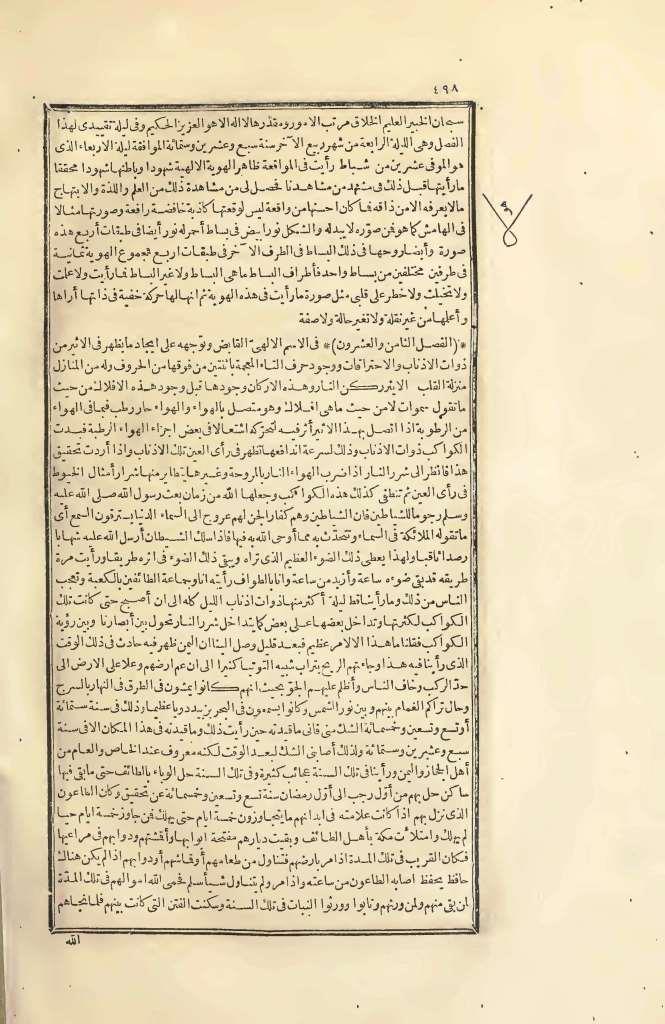 ٤٩٨
سبحان الخبير العليم الخلاق مرتب الامور ومقدرها لا اله الا هو العزيز الحكيم وفى ليلة تقييدى لهذا
الفصل وهى الليلة الرابعة من شهر ربيع الآخر سنة سبع وعشرين وستمائة الموافقة ليلة الاربعاء الذى
هو الموفى عشرين من شباط رأيت فى الواقعة ظاهر الهوية الالهية شهودا وباطنها شهودا محققا
ما رأيتها قبل ذلك فى مشهد من مشاهدنا فحصل لى من مشاهدة ذلك من العلم واللذة والابتهاج
ما لا يعرفه الا من ذاقه فما كان احسنها من واقعة ليس لوقعتها كاذبة خافضة رافعة وصورتها مثالا
فى الهامش كما هو فمن صوره لا يبدله والشكل نور ابيض فى بساط أحمر له نور أيضا فى طبقات أربع هذه
صورة وأيضا روحها فى ذلك البساط فى الطرف الآخر فى طبقات اربع فمجموع الهوية ثمانية
فى طرفين مختلفين من بساط واحد فأطراف البساط ما هى البساط ولا غير البساط فما رأيت ولا علمت
ولا تخيلت ولا خطر على قلبى مثل صورة ما رأيت فى هذه الهوية ثم انها لها حركة خفية فى ذاتها أراها
وأعلمها من غير نقلة ولا تغير حالة ولا صفة
* (الفصل الثامن والعشرون) * فى الاسم الالهى القابض وتوجهه على ايجاد ما يظهر فى الاثير من
ذوات الاذناب والاحتراقات ووجود حرف التاء المعجمة باثنتين من فوقها من الحروف وله من المنازل
منزلة القلب الاثير ركن النار وهذه الاركان وجودها قبل وجود هذه الافلاك من حيث
ما تقول سموات لا من حيث ما هى افلاك وهو متصل بالهواء والهواء حار رطب فبما فى الهواء
من الرطوبة اذا اتصل بهذا الاثير أثر فيه لتحركه اشتعالا فى بعض اجزاء الهواء الرطبة فبدت
الكواكب ذوات الاذناب وذلك لسرعة اندفاعها تظهر فى رأى العين تلك الاذناب واذا أردت تحقيق
هذا فانظر الى شرر النار اذا ضرب الهواء النار بالمروحة وغيرها يتطاير منها شرار أمثال الخيوط
فى رأى العين ثم تنطفى كذلك هذه الكواكب وجعلها الله من زمان بعث رسول الله صلى الله عليه
وسلم رجوما للشياطين فان الشياطين وهم كفار الجن لهم عروج الى السماء الدنيا يسترقون السمع أى
ما تقوله الملائكة فى السماء وتتحدث به مما أوحى الله به فيها فاذا سلك الشيطان أرسل الله عليه شهابا
رصدا ثاقبا ولهذا يعطى ذلك الضوء العظيم الذى تراه ويبقى ذلك الضوء فى اثره طريقا ورأيت مرة
طريقه قد بقى ضوءه ساعة وأزيد من ساعة وانا بالطواف رأيته انا وجماعة الطائفين بالكعبة وتعجب
الناس من ذلك وما رأينا قط ليلة أكثر منها ذوات اذناب الليل كله الى ان أصبح حتى كانت تلك
الكواكب لكثرتها وتداخل بعضها على بعض كما يتداخل شرر النار تحول بين أبصارنا وبين رؤية
الكواكب فقلنا ما هذا الا لامر عظيم فبعد قليل وصل الينا ان اليمن ظهر فيه حادث فى ذلك الوقت
الذى رأينا فيه هذا وجاءتهم الريح بتراب شبيه التوتيا كثيرا الى ان عم ارضهم وعلا على الارض الى
حد الركب وخاف الناس وأظلم عليهم الجو بحيث انهم كانوا يمشون فى الطرق فى النهار بالسرج
وحال تراكم الغمام بينهم وبين نور الشمس وكانوا يسمعون فى البحر بزبيد دويا عظيما وذلك فى سنة ستمائة
أو تسع وتسعين وخمسمائة الشك منى فانى ما قيدته حين رأيت ذلك وما قيدته فى هذا المكان الا فى سنة
سبع وعشرين وستمائة ولذلك أصابنى الشك لبعد الوقت لكنه معروف عند الخاص والعام من
أهل الحجاز واليمن ورأينا فى تلك السنة عجائب كثيرة وفى تلك السنة حل الوباء بالطائف حتى ما بقى فيها
ساكن حل بهم من أول رجب الى أول رمضان سنة تسع وتسعين وخمسمائة عن تحقيق وكان الطاعون
الذى نزل بهم اذا كانت علامته فى ابدانهم ما يتجاوزون خمسة ايام حتى يهلك فمن جاوز خمسة ايام حيا
لم يهلك وامتلأت مكة بأهل الطائف وبقيت ديارهم مفتحة ابوابها وأقمشتهم ودوابهم فى مراعيها
فكان الغريب فى تلك المدة اذا مر بارضهم فتناول من طعامهم أو قماشهم أو دوابهم اذا لم يكن هنالك
حافظ يحفظ اصابه الطاعون من ساعته واذا مر ولم يتناول شيأ سلم فحمى الله اموالهم فى تلك المدة
لمن بقى منهم ولمن ورثهم وتابوا وورثوا البنات فى تلك السنة وسكنت الفتن التى كانت بينهم فلما نجاهم
الله